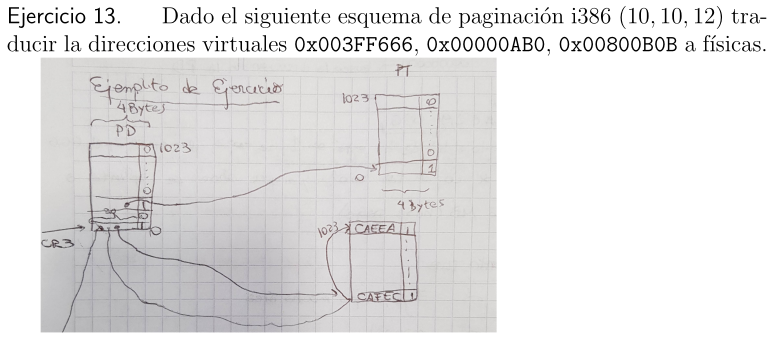 Ejercicio 13. Dado el siguiente esquema de paginación i386 (10, 10, 12) tra-
ducir la direcciones virtuales 0x003FF666, 0x00000AB0, 0x00800B0B a físicas.
Ejemplito de Ejercicio
4 Bytes
PD
0 1023
0
1
0
1 0
CR3
PT
1023 0
0
0 1
4 Bytes
1023 CAEEA 1
CAFEC 1